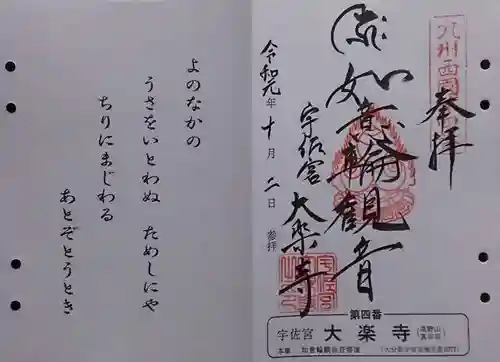 よのなかの
うさをいとわぬ ためしにや
ちりにまじわる
あとぞとうとき
九州西国
奉拝
如意輪観音
宇佐宮
大楽寺
令和元年十月二日 参拝
第四番
宇佐宮 大楽寺 (高野山真言宗)
本尊